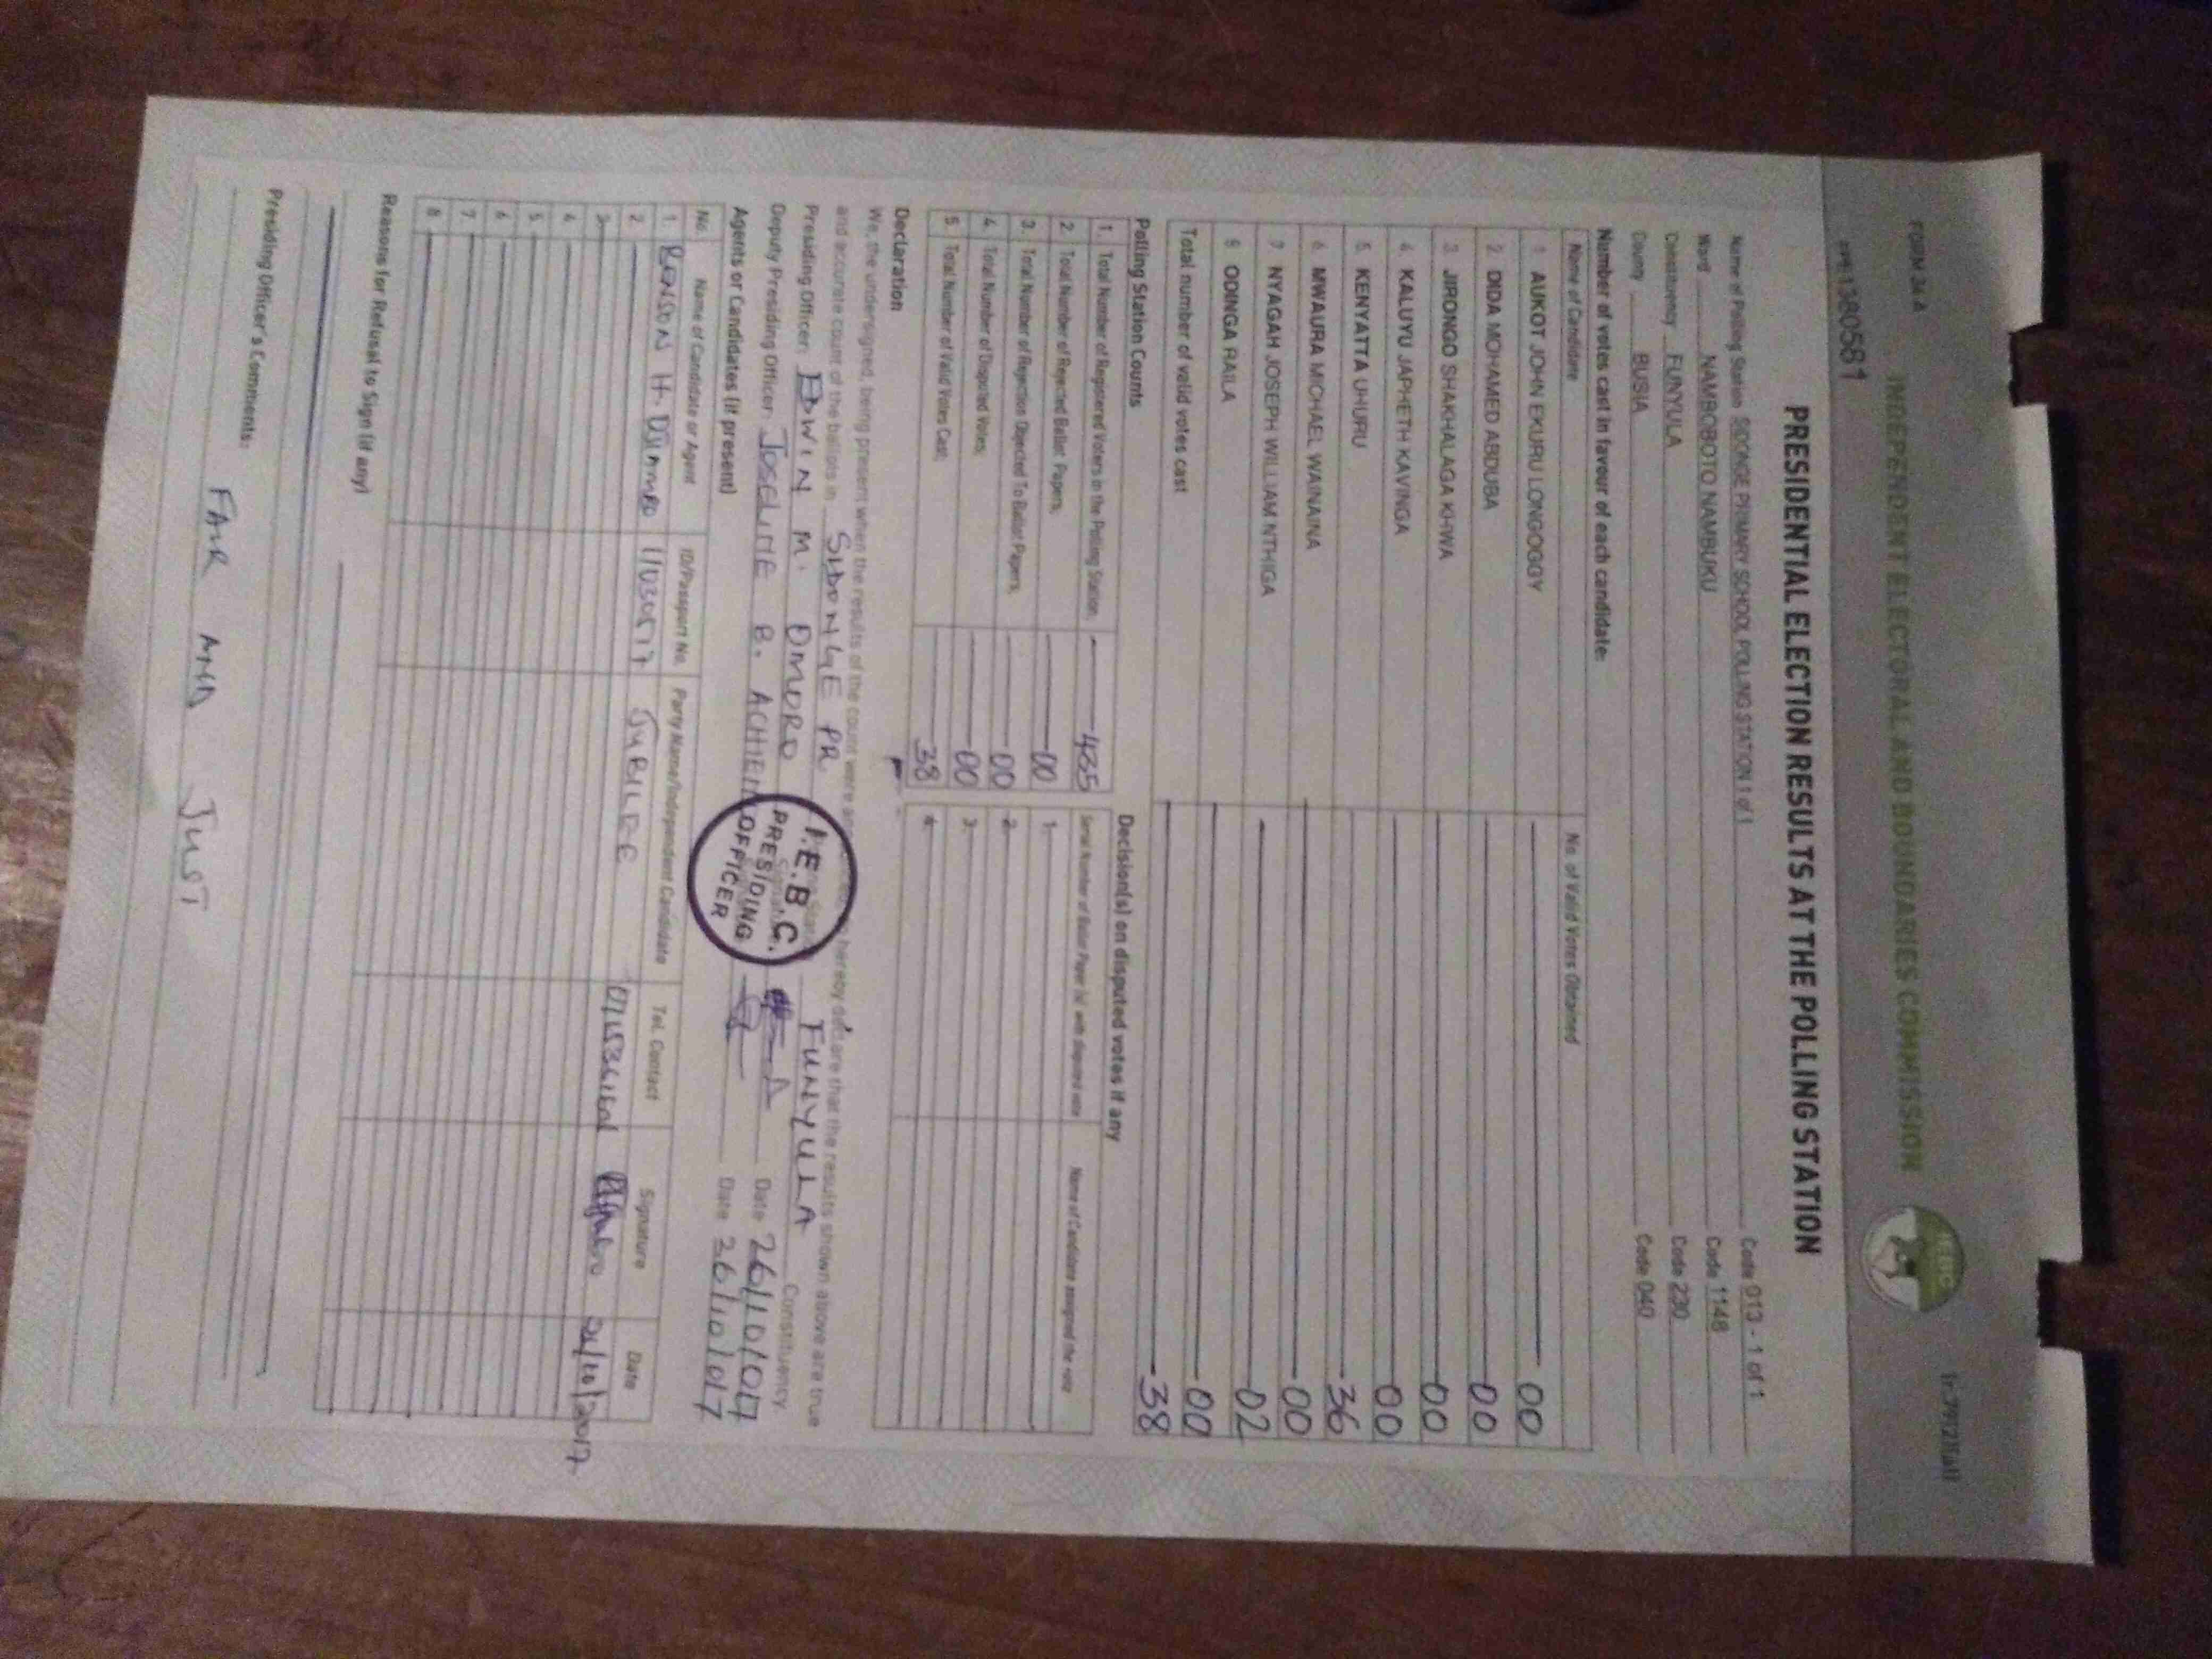 FORM 34 A
INDEPENDENT ELECTORAL AND BOUNDARIES COMMISSION
IEBC
PRESIDENTIAL ELECTION RESULTS AT THE POLLING STATION
Name of Polling Station SIDONGE PRIMARY SCHOOL POLLING STATION 1 of 1 Code 013 - 1 of 1
Ward NAMBOBOTO NAMBUKU Code 1148
Constituency FUNYULA Code 230
County BUSIA Code 040
Number of votes cast in favour of each candidate:
Name of Candidate No. of Valid Votes Obtained
1 AUKOT JOHN EKURU LONGOGGY 00
2 DIDA MOHAMED ABDUBA 00
3 JIRONGO SHAKHALAGA KHWA 00
4 KALUYU JAPHETH KAVINGA 00
5 KENYATTA UHURU 36
6 MWAURA MICHAEL WAINAINA 00
7 NYAGAH JOSEPH WILLIAM NTHIGA 02
8 ODINGA RAILA 00
Total number of valid votes cast 38
Polling Station Counts
1. Total Number of Registered Voters in the Polling Station 435
2. Total Number of Rejected Ballot Papers 00
3. Total Number of Rejection Objected To Ballot Papers 00
4. Total Number of Disputed Votes 00
5. Total Number of Valid Votes Cast 38
Decision(s) on disputed votes if any
Serial Number of Ballot Paper (s) with disputed vote Name of Candidate assigned the vote
1
2
3
4
Declaration
We, the undersigned, being present when the results of the count were hereby declare that the results shown above are true
and accurate count of the ballots in SIDONGE PR FUNYULA Constituency
Presiding Officer: EDWIN M. OMORO Date 26/10/017
Deputy Presiding Officer: JOSELINE B. ACHIENG Date 26/10/017
I.E.B.C.
PRESIDING
OFFICER
Agents or Candidates (if present)
No. Name of Candidate or Agent ID/Passport No. Party Name/Independent Candidate Tel. Contact Signature Date
1 BENSON H. JUBILEE 26/10/2017
2
3
4
5
6
7
8
Reasons for Refusal to Sign (if any)
Presiding Officer's Comments:
FAIR AND JUST